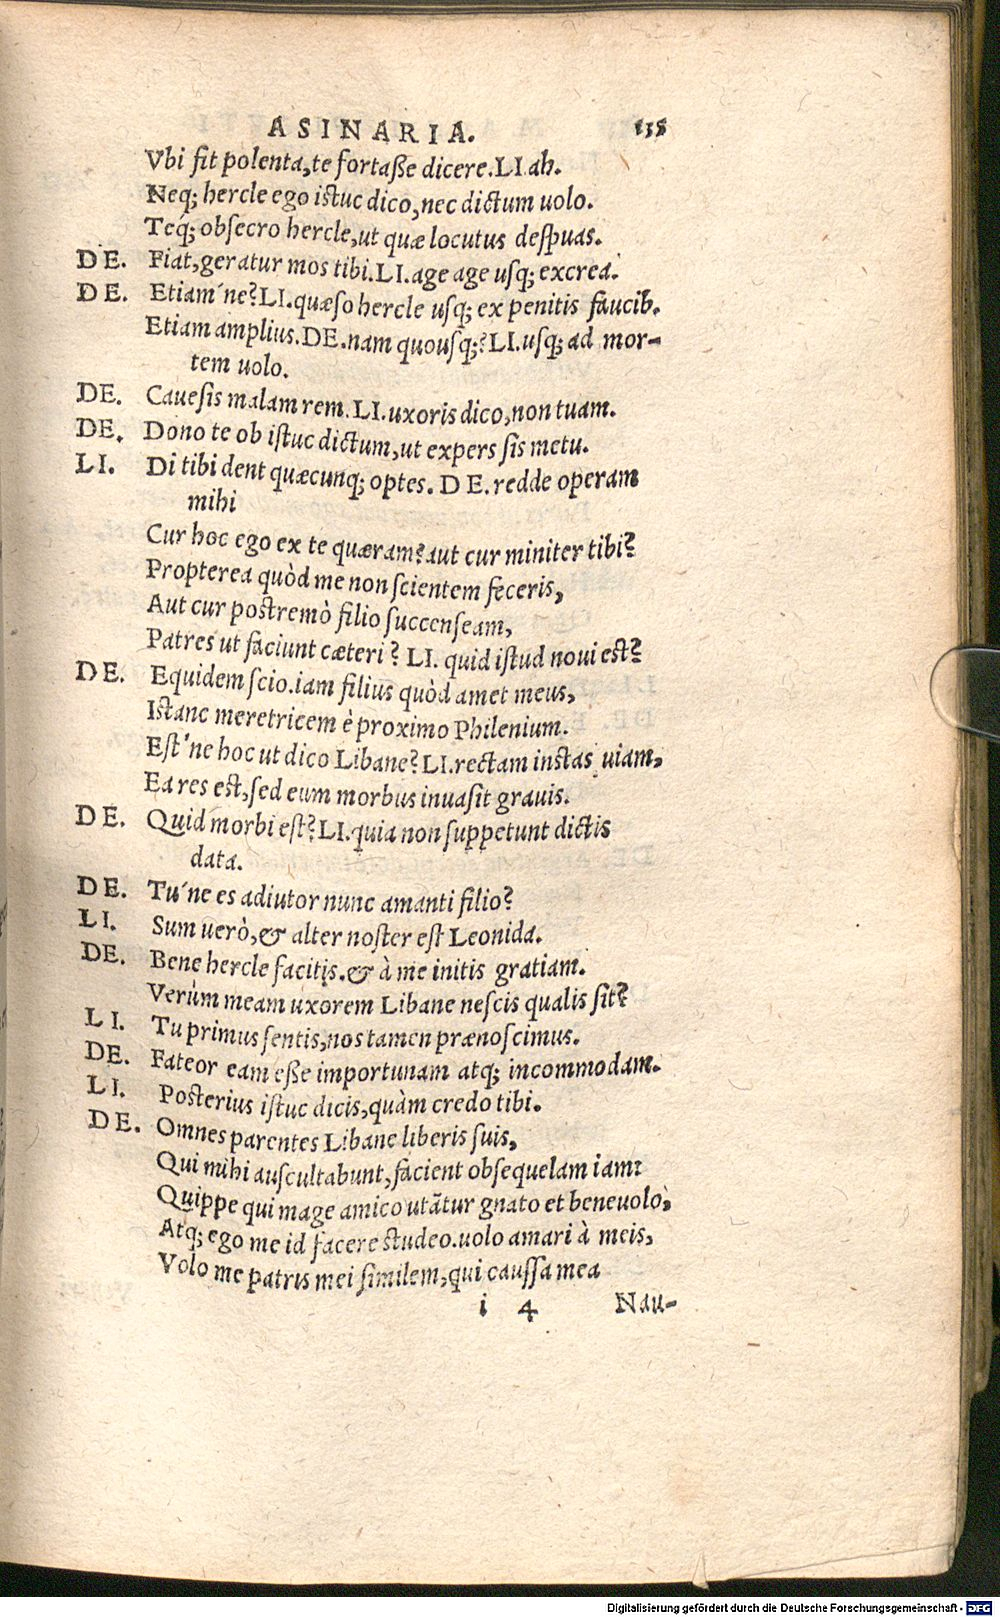 ASINARIA. 138
Vbi fit polenta, te fortaſſe dicere. LI. ah.
Neq; hercle ego istuc dico, nec dictum uolo.
Teq́; obſecro hercle, ut quæ locutus deſpuas.
DE. Fiat, geratur mos tibi. LI. age age uſq; excrea.
DE. Etiam´ne? LI. quæſo hercle uſq; ex penitis faucib.
Etiam amplius. DE. nam quouſq;? LI. uſq; ad mor-
tem uolo.
DE. Caueſis malam rem. LI. uxoris dico, non tuam.
DE. Dono te ob iſtuc dictum, ut expers ſis metu.
LI. Di tibi dent quæcunq; optes. DE. redde operam
mihi
Cur hoc ego ex te quæram? aut cur miniter tibi?
Propterea quòd me non ſcientem feceris,
Aut cur postremò filio succenſeam,
Patres ut faciunt cæteri? LI. quid iſtud noui est?
DE. Equidem ſcio. iam filius quòd amet meus,
Istanc meretricem è proximo Philenium.
Eſt´ne hoc ut dico Libane? LI. rectam instas uiam,
Ea res est, ſed eum morbus inuaſit grauis.
DE. Quid morbi eſt? LI. quia non ſuppetunt dictis
data.
DE. Tu´ne es adiutor nunc amanti filio?
LI. Sum uerò, & alter noster eſt Leonida.
DE. Bene hercle facitis. & à me initis gratiam.
Verùm meam uxorem Libane neſcis qualis ſit?
LI. Tu primus ſentis, nos tamen prænoſcimus.
DE. Fateor eam eſſe importunam atq; incommodam.
LI. Posterius iſtuc dicis, quàm credo tibi.
DE. Omnes parentes Libane liberis ſuis,
Qui mihi auſcultabunt, facient obsequelam iam:
Quippe qui mage amico utãtur gnato et beneuolo,
Atq; ego me id facere studeo. uolo amari à meis,
Volo me patris mei ſimilem, qui cauſſa mea
i 4 Nau-
Digitalisierung gefördert durch die Deutsche Forschungsgemeinschaft - DFG